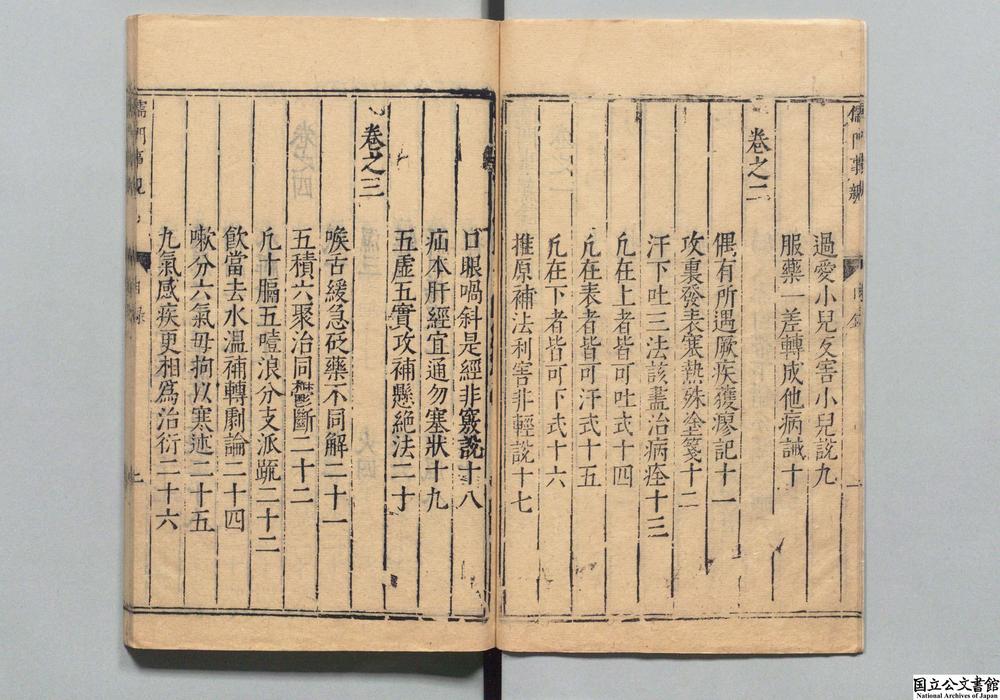 儒門事親
過愛小兒反害小兒說九
服藥一差轉成他病誡十
卷之二
偶有所遇厥疾獲瘳記十一
攻裏發表寒熱殊塗箋十二
汗下吐三法該盡治病詮十三
凢在上者皆可吐式十四
凢在表者皆可汗式十五
凢在下者皆可下式十六
推原補法利害非輕說十七
口眼喎斜是經非竅說十八
疝本肝經宜通勿塞狀十九
五虛五實攻補懸絶法二十
卷之三
喉舌緩急砭藥不同解二十一
五積六聚治同鬱斷二十二
凢十膈五噎浪分支派䟽二十二
飲當去水溫補轉劇論二十四
嗽分六氣毋拘以寒述二十五
九氣感疾更相爲治衍二十六
儒門事親
目錄
国立公文書館
National Archives of Japan